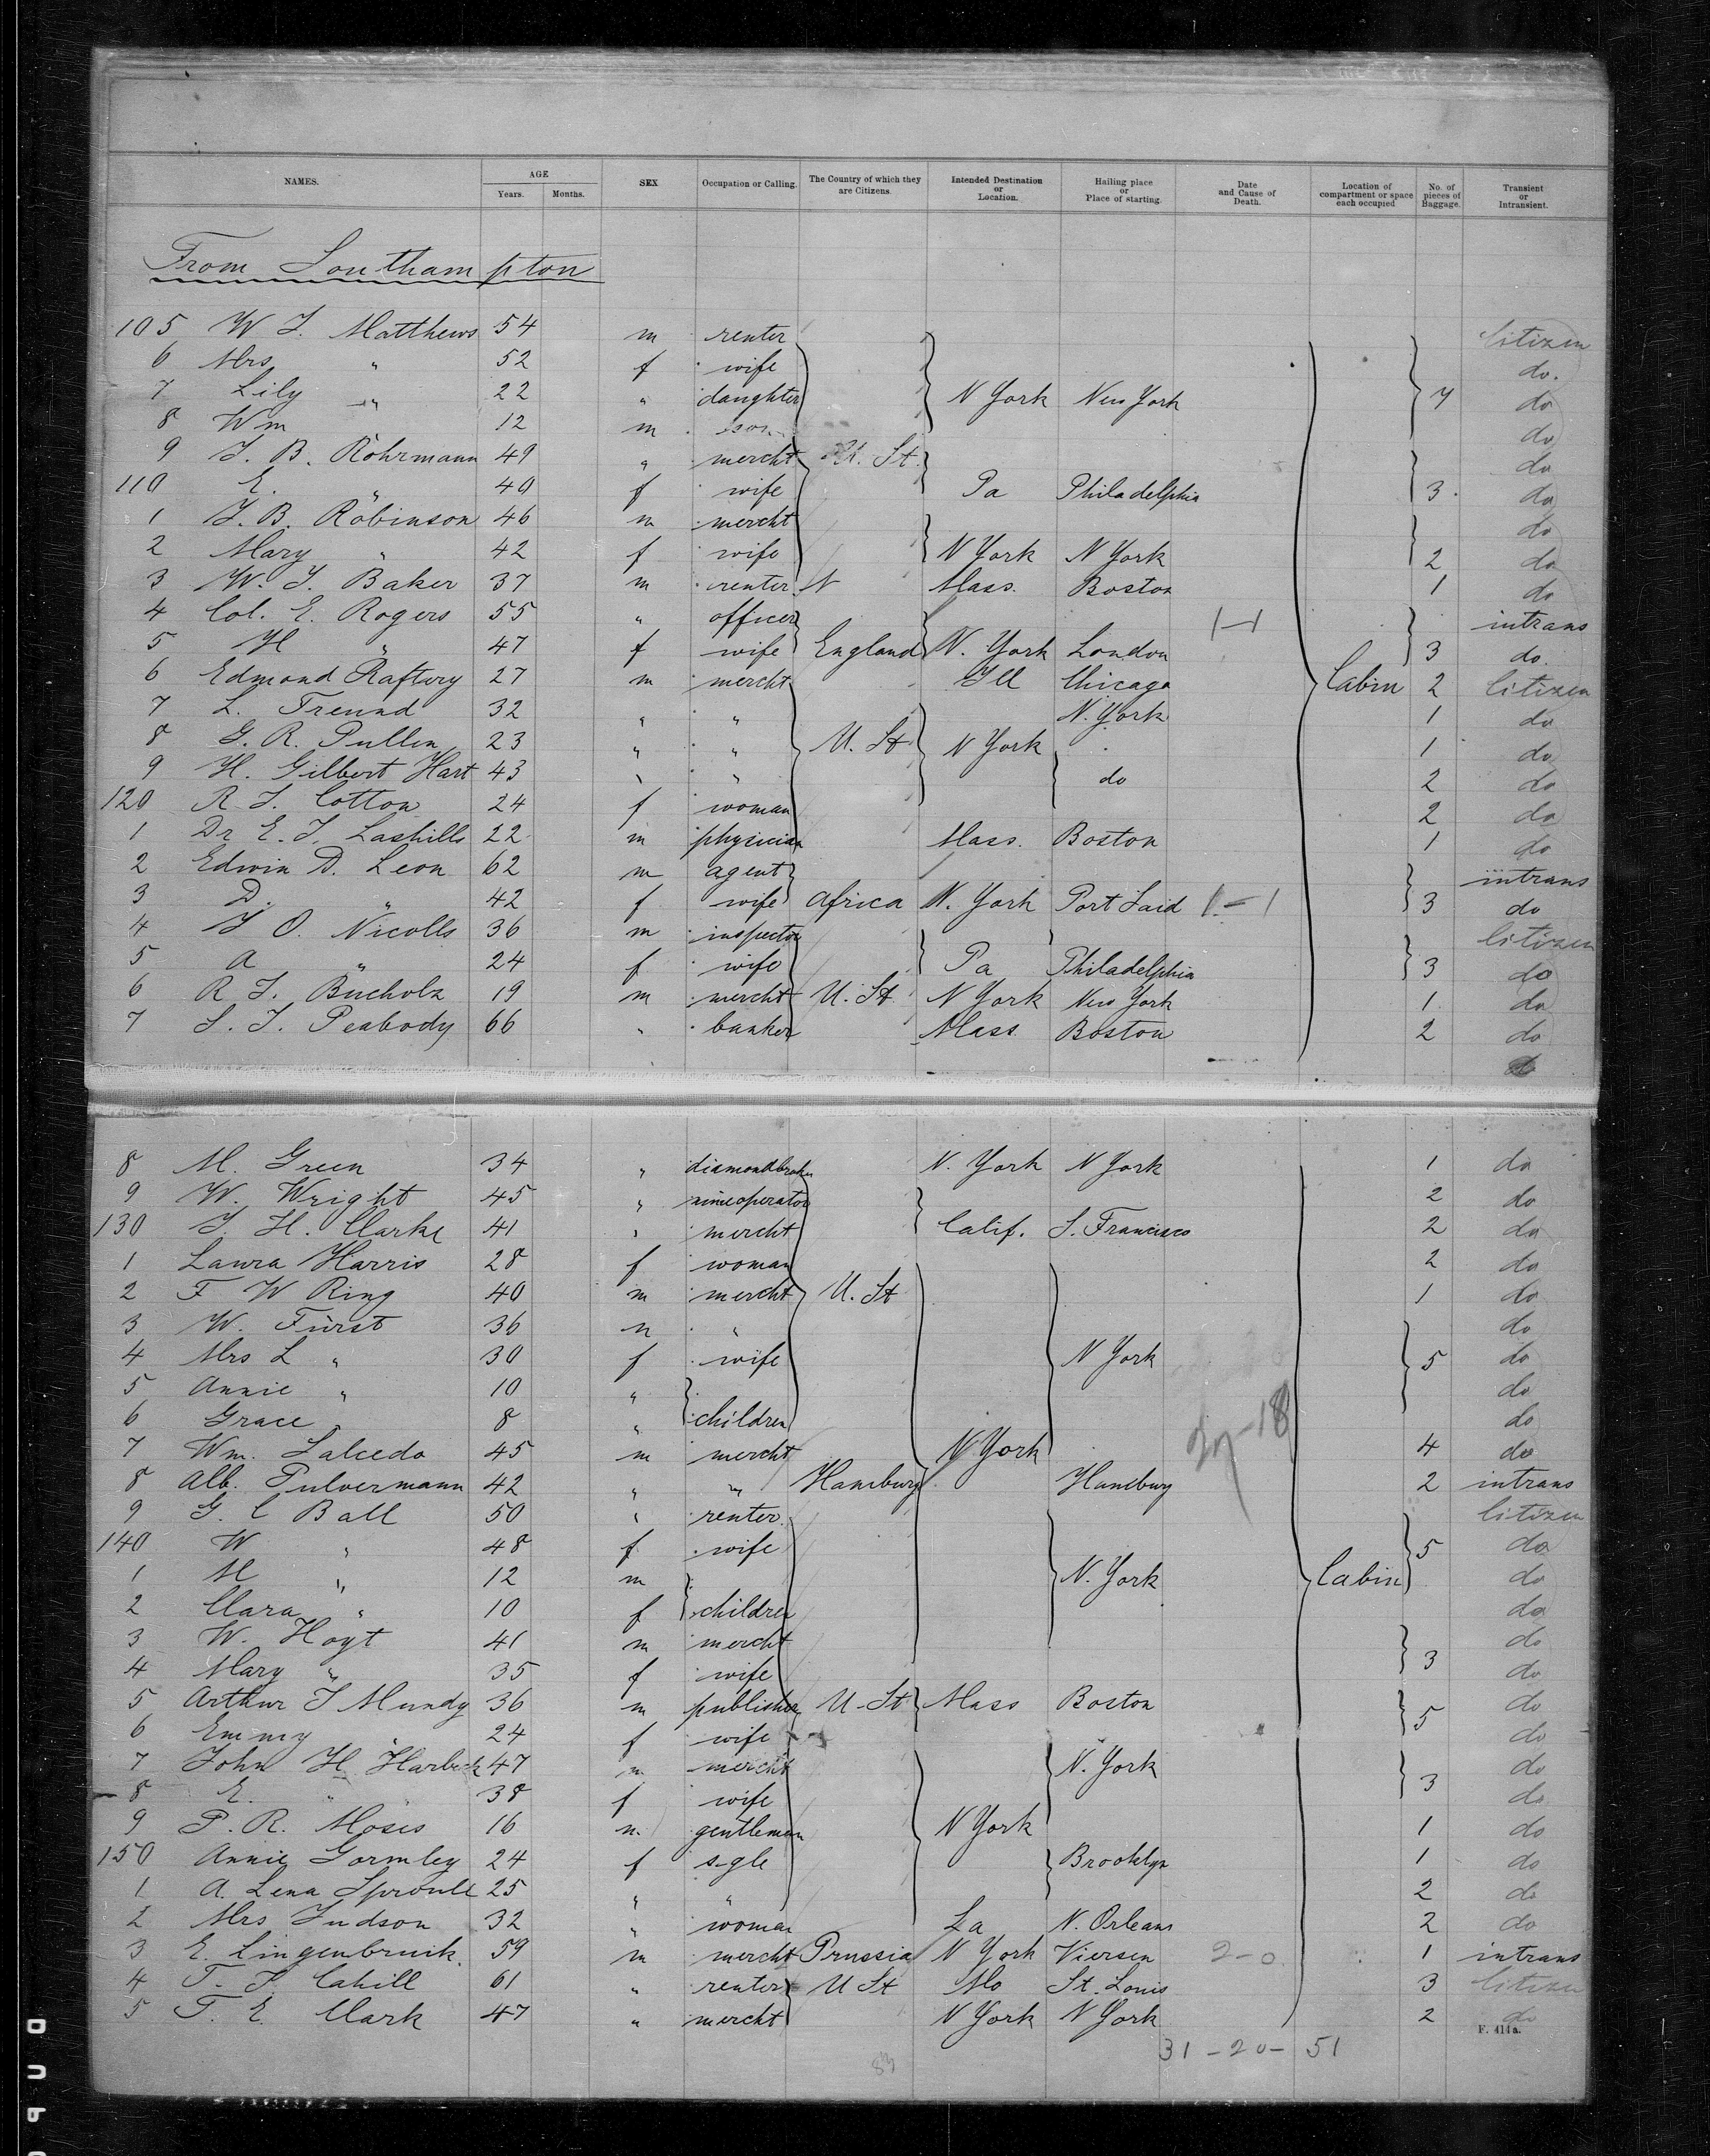 NAMES. AGE Years. Months. SEX Occupation or Calling. The Country of which they are Citizens. Intended Destination or Location. Hailing place or Place of starting. Date and Cause of Death. Location of compartment or space each occupied No. of pieces of Baggage. Transient or Intransient.
From Southampton
105 W J. Matthews 54 m renter Citizen
6 Mrs " 52 f wife do.
7 Lily " 22 " daughter N York New York 7 do
8 Wm " 12 m son do
9 J. B. Rohrmann 49 " mercht U. St. do
110 E. " 40 f wife Pa Philadelphia 3 do
1 J. B. Robinson 46 m mercht do
2 Mary " 42 f wife N York N York 2 do
3 W. J. Baker 37 m renter Mass. Boston 1 do
4 Col. E. Rogers 55 " officer 1-1 intrans
5 H " 47 f wife England N. York London 3 do.
6 Edmond Raftery 27 m mercht Ill Chicago Cabin 2 Citizen
7 L. Freund 32 " " N. York 1 do
8 G. R. Pullen 23 " " U. St N York 1 do
9 H. Gilbert Hart 43 " " do 2 do
120 R J. Cotton 24 f woman 2 do
1 Dr E. J. Laskills 22 m physician Mass. Boston 1 do
2 Edwin D. Leon 62 m agent intrans
3 D. " 42 f wife Africa N. York Port Said 1-1 3 do
4 J O. Nicolls 36 m inspector Citizen
5 A " 24 f wife Pa Philadelphia 3 do
6 R J. Bucholz 19 m mercht U. St N York New York 1 do
7 S. J. Peabody 66 " banker Mass Boston 2 do
do
8 M. Green 34 " diamondbroker N. York N York 1 do
9 W. Wright 45 " mineoperator 2 do
130 J. H. Clarke 41 " mercht Calif. S. Francisco 2 do
1 Laura Harris 28 f woman 2 do
2 F W Ring 40 m mercht U. St 1 do
3 W. Fürst 36 m " do
4 Mrs L " 30 f wife N York 5 do
5 Annie " 10 " do
6 Grace " 8 " children do
7 Wm. Salcedo 45 m mercht N York 4 do
8 Alb. Pulvermann 42 " " Hamburg Hamburg 2 intrans
9 G. C Ball 50 " renter Citizen
140 W " 48 f wife 5 do
1 M " 12 m N. York Cabin do
2 Clara " 10 f children do
3 W. Hoyt 41 m mercht do
4 Mary " 35 f wife 3 do
5 Arthur J Mundy 36 m publisher U. St Mass Boston do
6 Emmy " 24 f wife 5 do
7 John H Harbeck 47 m mercht N. York do
8 E. " 38 f wife 3 do
9 P. R. Moses 16 m. gentleman N York 1 do
150 Annie Gormley 24 f sgle Brooklyn 1 do
1 A. Lena Sproull 25 " " 2 do
2 Mrs Judson 32 " woman La N. Orleans 2 do
3 E. Lingenbrink 59 m mercht Prussia N York Viersen 2-0 1 intrans
4 T. J. Cahill 61 " renter U St Mo St. Louis 3 Citizen
5 T. E. Clark 47 " mercht N York N York 2 do
F. 414a.
31 - 20 - 51